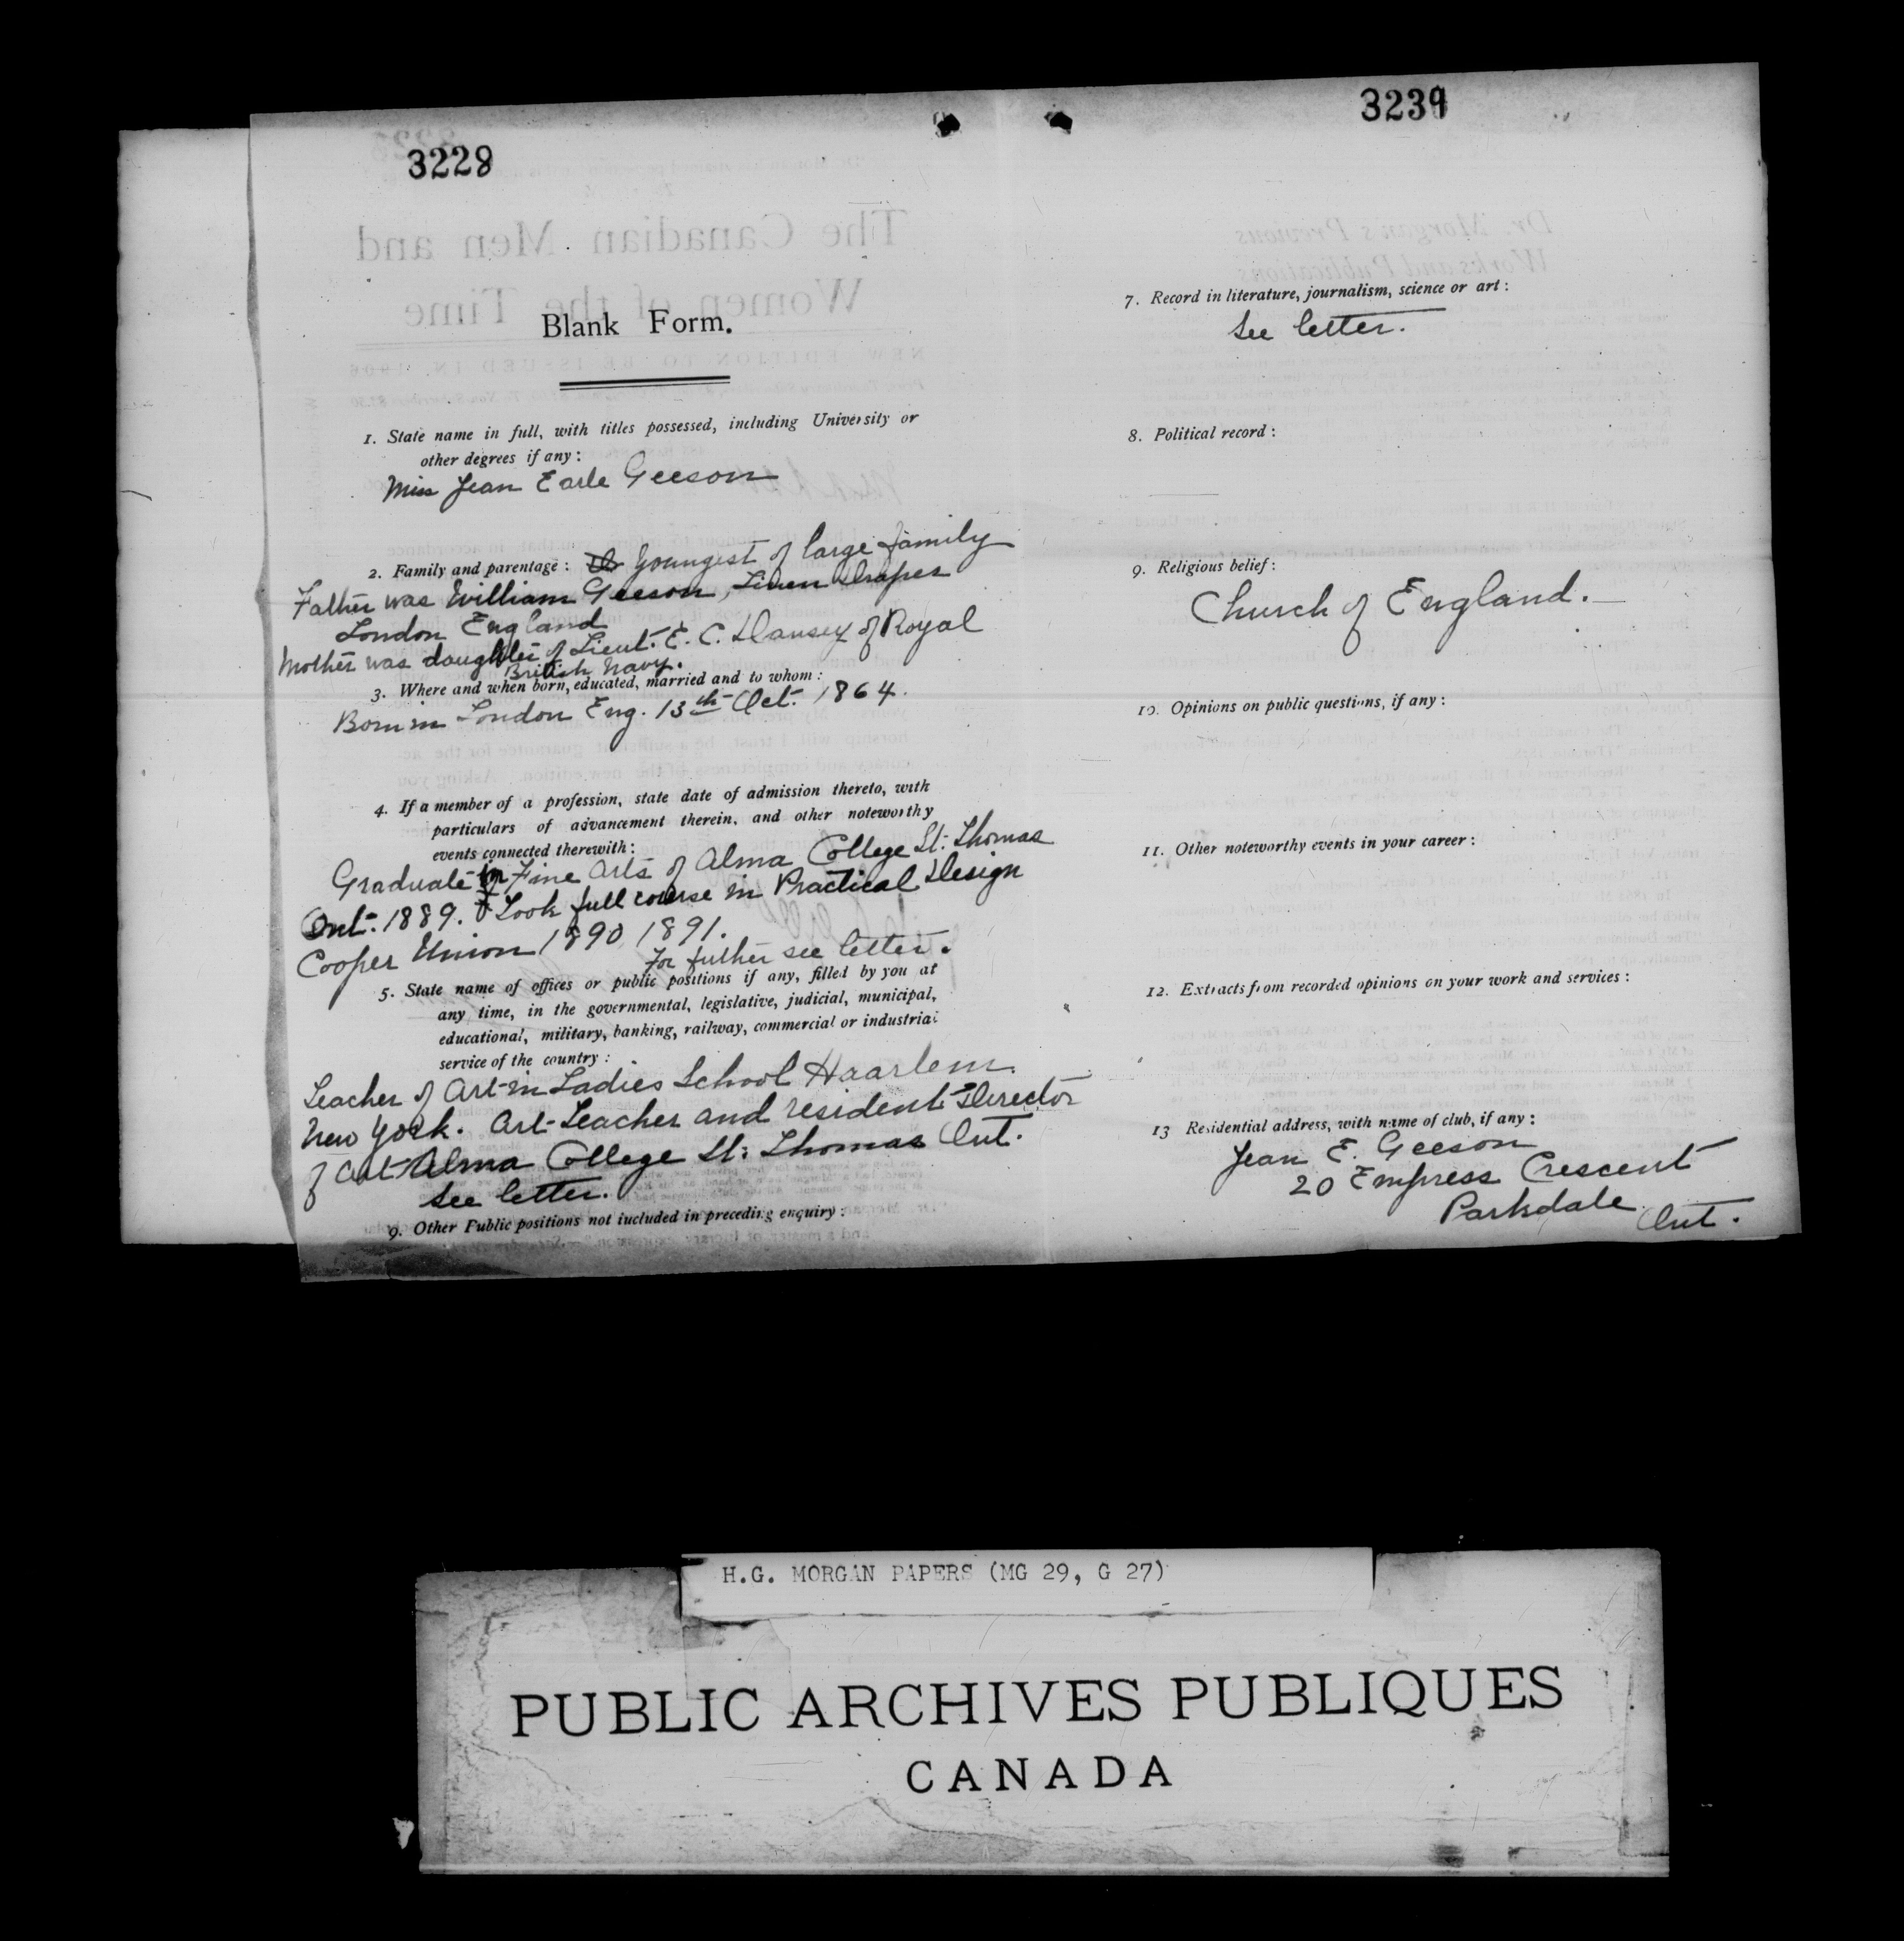 3229
3239
Blank Form.
1. State name in full, with titles possessed, including University or
other degrees if any:
Miss Jean Earle Geeson
2. Family and parentage: Youngest of large family
Father was William Geeson, Linen Draper
London England
Mother was daughter of Lieut. E. C. Dansey of Royal
British Navy.
3. Where and when born, educated, married and to whom:
Born in London Eng. 13th Oct. 1864.
4. If a member of a profession, state date of admission thereto, with
particulars of advancement therein, and other noteworthy
events connected therewith:
Graduate in Fine Arts of Alma College St. Thomas
Ont. 1889. Took full course in Practical Design
Cooper Union 1890, 1891.
For futher see letter.
5. State name of offices or public positions if any, filled by you at
any time, in the governmental, legislative, judicial, municipal,
educational, military, banking, railway, commercial or industrial
service of the country:
Teacher of Art in Ladies School Haarlem.
New York. Art Teacher and resident Director
of Art Alma College St. Thomas Ont.
See letter.
9. Other Public positions not iucluded in preceding enquiry:
7. Record in literature, journalism, science or art:
See letter.
8. Political record:
9. Religious belief:
Church of England.
10. Opinions on public questions, if any:
11. Other noteworthy events in your career:
12. Extracts from recorded opinions on your work and services:
13 Residential address, with name of club, if any:
Jean E. Geeson
20 Empress Crescent
Parkdale
Ont.
H.G. MORGAN PAPERS (MG 29, G 27)
PUBLIC ARCHIVES PUBLIQUES
CANADA